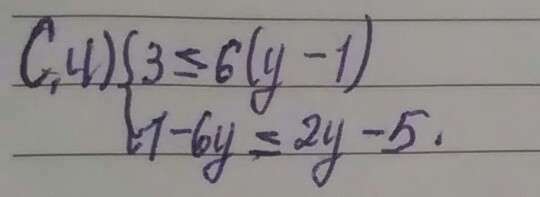 C,4) { 3 ≤ 6(y - 1)
1 - 6y ≤ 2y - 5.